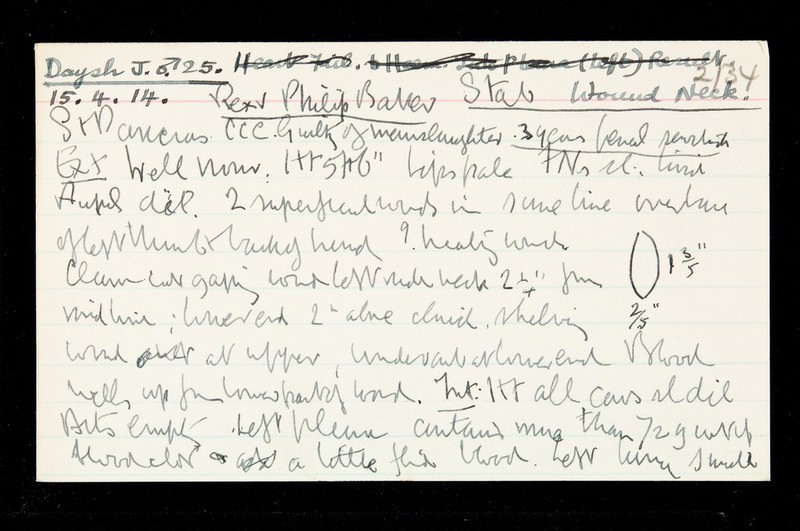 Daysh J. ♂ 25. Heart (left) Result. 2/34
15. 4. 14. Rex v Philip Baker Stab Wound Neck.
St Pancras. CCC. Guilty of manslaughter. 3 years penal servitude
Ext Well nour. Ht 5ft 6" Lips pale FNs sl. livid
Pupils dil. 2 superficial wounds in same line over base
of left thumb & back of hand ?. healing wounds
Clean cut gaping wound left side neck 2 1/4" from 1 3/5"
midline; lower end 2" above clavicle. Shelving 2/5"
wound at upper, undercut at lower end Blood
wells up from lower part of wound. Int: Ht all cavs sl dil
Arts empty. Left pleura contains more than 1/2
blood clot & a little fluid blood. Left lung small